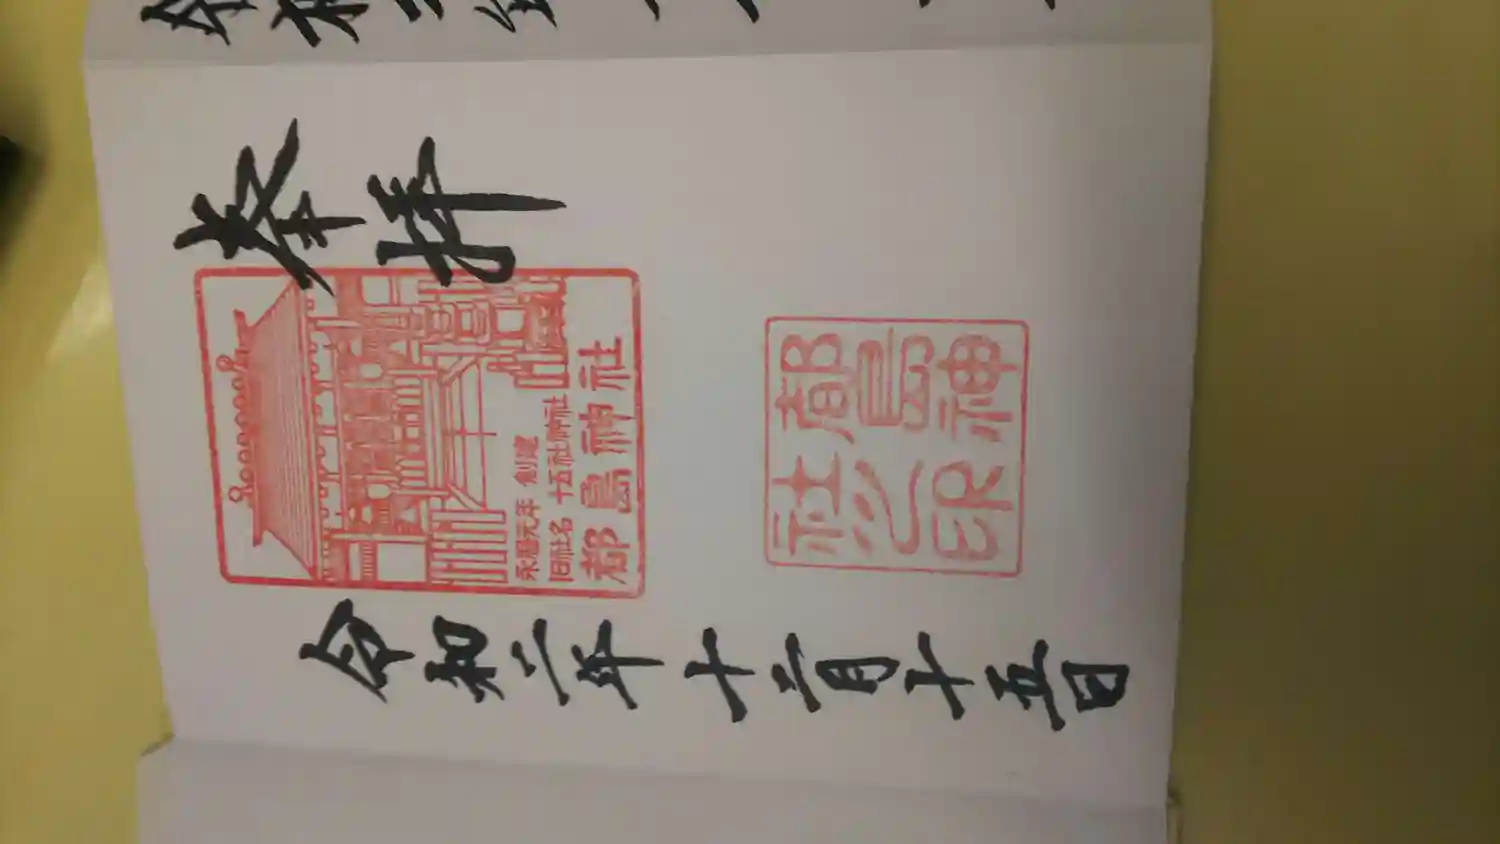 奉拝
都島神社
旧社名 十五社神社
永暦元年 創建
都島神
社之印
令和二年十二月十五日